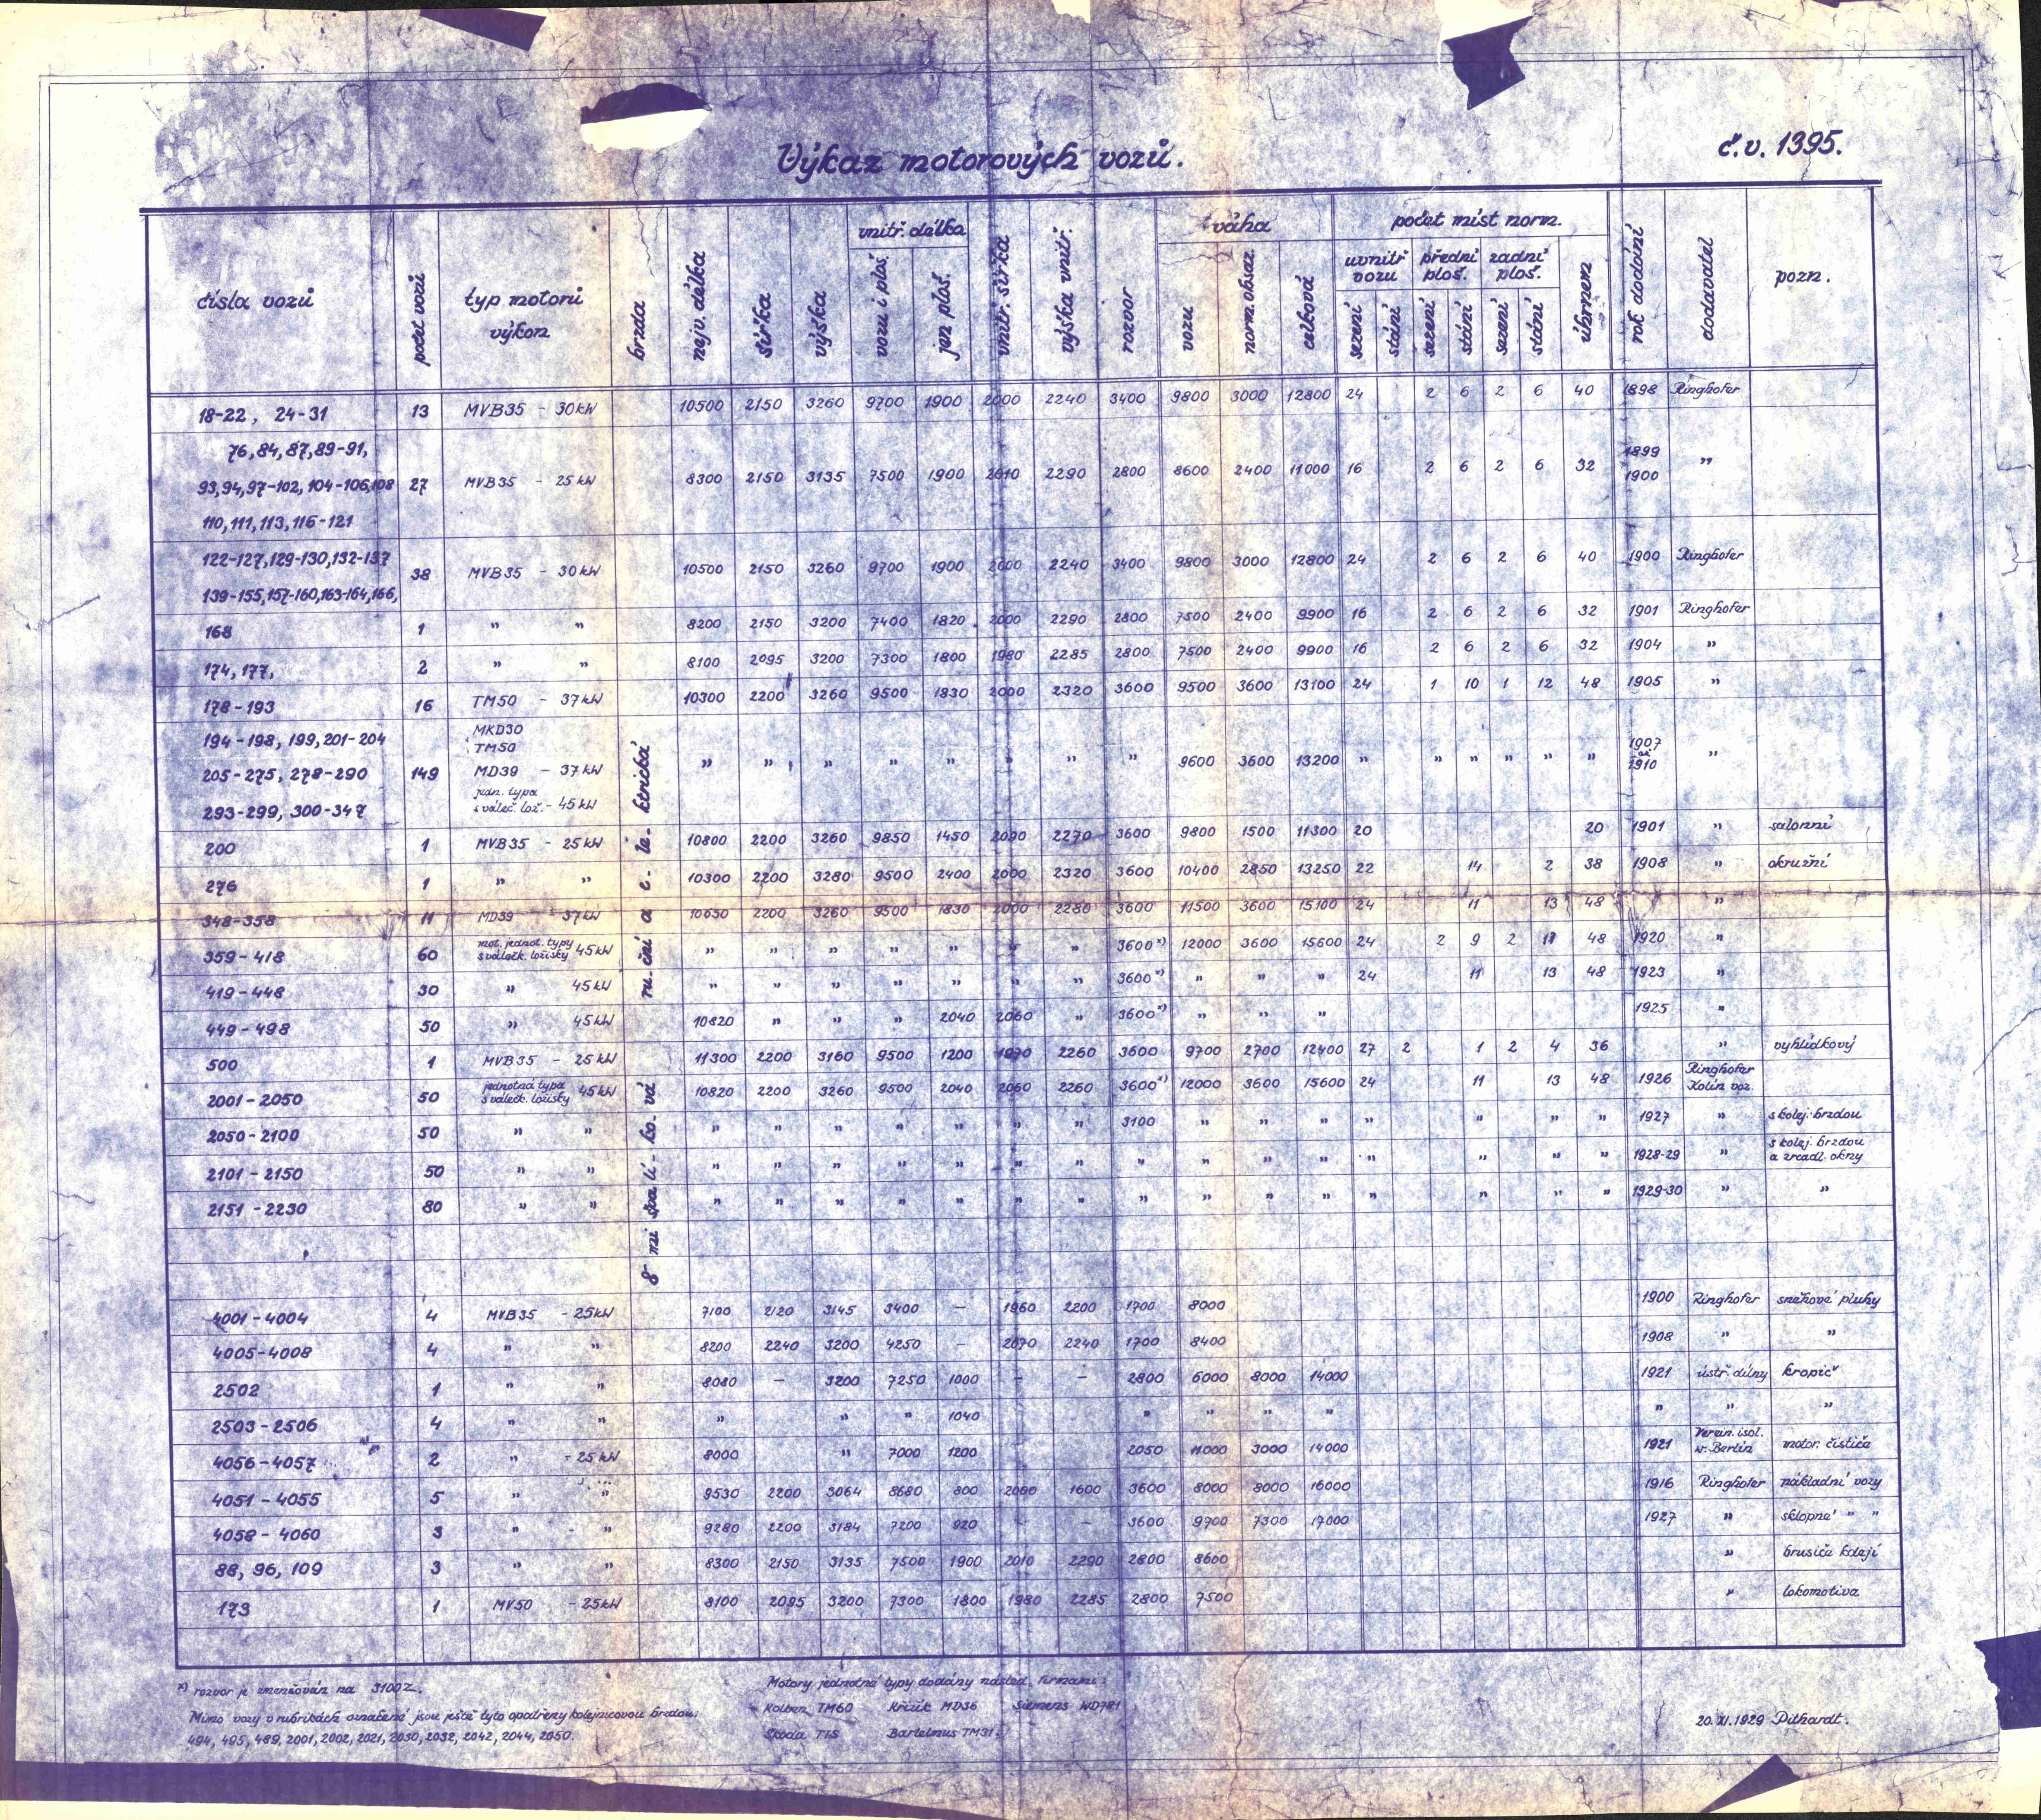 Výkaz motorových vozů.
č.v. 1395.
čísla vozů
počet vozů
typ motorů
výkon
brzda
nejv. délka
šířka
výška
vnitř. délka
vozu i ploš.
jen ploš.
vnitř. šířka
výška vnitř.
rozvor
váha
vozu
norm. obsaz.
celková
počet míst norm.
uvnitř vozu
přední ploš.
zadní ploš.
sezení
stání
sezení
stání
sezení
stání
úhrnem
rok dodání
dodavatel
pozn.
18-22, 24-31 13 MVB35 - 30kW 10500 2150 3260 9700 1900 2000 2240 3400 9800 3000 12800 24 2 6 2 6 40 1898 Ringhofer
76, 84, 87, 89-91,
93, 94, 97-102, 104-106, 108 27 MVB35 - 25kW 8300 2150 3135 7500 1900 2010 2290 2800 8600 2400 11000 16 2 6 2 6 32 1899 1900 "
110, 111, 113, 116-121
122-127, 129-130, 132-137
38 MVB35 - 30kW 10500 2150 3260 9700 1900 2000 2240 3400 9800 3000 12800 24 2 6 2 6 40 1900 Ringhofer
139-155, 157-160, 163-164, 166,
168 1 " " 8200 2150 3200 7400 1820 2000 2290 2800 7500 2400 9900 16 2 6 2 6 32 1901 Ringhofer
174, 177, 2 " " 8100 2095 3200 7300 1800 1980 2285 2800 7500 2400 9900 16 2 6 2 6 32 1904 "
178-193 16 TM50 - 37kW 10300 2200 3260 9500 1830 2000 2320 3600 9500 3600 13100 24 1 10 1 12 48 1905 "
194-198, 199, 201-204 MKD30
TM50
205-275, 278-290 149 MD39 - 37kW " " " " " " " " 9600 3600 13200 " " " " " " 1907 až 1910 "
jedn. typa
293-299, 300-347 s váleč. lož. - 45kW
200 1 MVB35 - 25kW 10800 2200 3260 9850 1450 2090 2270 3600 9800 1500 11300 20 20 1901 " salonní
276 1 " " 10300 2200 3280 9500 2400 2000 2320 3600 10400 2850 13250 22 14 2 38 1908 " okružní
348-358 11 MD39 37kW 10650 2200 3260 9500 1830 2000 2280 3600 11500 3600 15100 24 11 13 48 "
359-418 60 mot. jednot. typy s válečk. ložisky 45kW " " " " " " " 3600 x) 12000 3600 15600 24 2 9 2 11 48 1920 "
419-448 30 " 45kW " " " " " " " 3600 x) " " " 24 11 13 48 1923 "
449-498 50 " 45kW 10820 " " " 2040 2060 " 3600 x) " " " 1925 "
500 1 MVB35 - 25kW 11300 2200 3160 9500 1200 1970 2260 3600 9700 2700 12400 27 2 1 2 4 36 " vyhlídkový
2001-2050 50 jednotná typa s válečk. ložisky 45kW 10820 2200 3260 9500 2040 2060 2260 3600 x) 12000 3600 15600 24 11 13 48 1926 Ringhofer Kolín voz.
2050-2100 50 " " " " " " " " " 3100 " " " " " " " 1927 " s kolej. brzdou
2101-2150 50 " " " " " " " " " " " " " " " " " 1928-29 " s kolej. brzdou a zrcadl. okny
2151-2230 80 " " " " " " " " " " " " " " " " " 1929-30 " "
ru-ční a e-le-ktrická
8mi špalí-ko-vá
4001-4004 4 MVB35 - 25kW 7100 2120 3145 3400 — 1960 2200 1700 8000 1900 Ringhofer sněhové pluhy
4005-4008 4 " " 8200 2240 3200 4250 — 2070 2240 1700 8400 1908 " "
2502 1 " " 8080 — 3200 7250 1000 — — 2800 6000 8000 14000 1921 ústř. dílny kropič
2503-2506 4 " " " " " 1040 " " " " " " "
4056-4057 2 " - 25kW 8000 " 7000 1200 2050 11000 3000 14000 1921 Verein. isol. w. Berlin motor. čističe
4051-4055 5 " " 9530 2200 3064 8680 800 2060 1600 3600 8000 8000 16000 1916 Ringhofer nákladní vozy
4058-4060 3 " - " 9280 2200 3184 7200 920 — — 3600 9700 7300 17000 1927 " sklopné " "
88, 96, 109 3 " " 8300 2150 3135 7500 1900 2010 2290 2800 8600 " brusiče kolejí
173 1 MV50 - 25kW 8100 2095 3200 7300 1800 1980 2285 2800 7500 " lokomotiva
x) rozvor je zmenšován na 3100
Mimo vozy v rubrikách označené jsou ještě tyto opatřeny kolejnicovou brzdou:
494, 495, 489, 2001, 2002, 2021, 2030, 2032, 2042, 2044, 2050.
Motory jednotné typy dodány násled. firmami:
Kolben TM60 Křižík MD36 Siemens WD781
Škoda T1S Bartelmus TM31.
20.XI.1929 Pithardt.